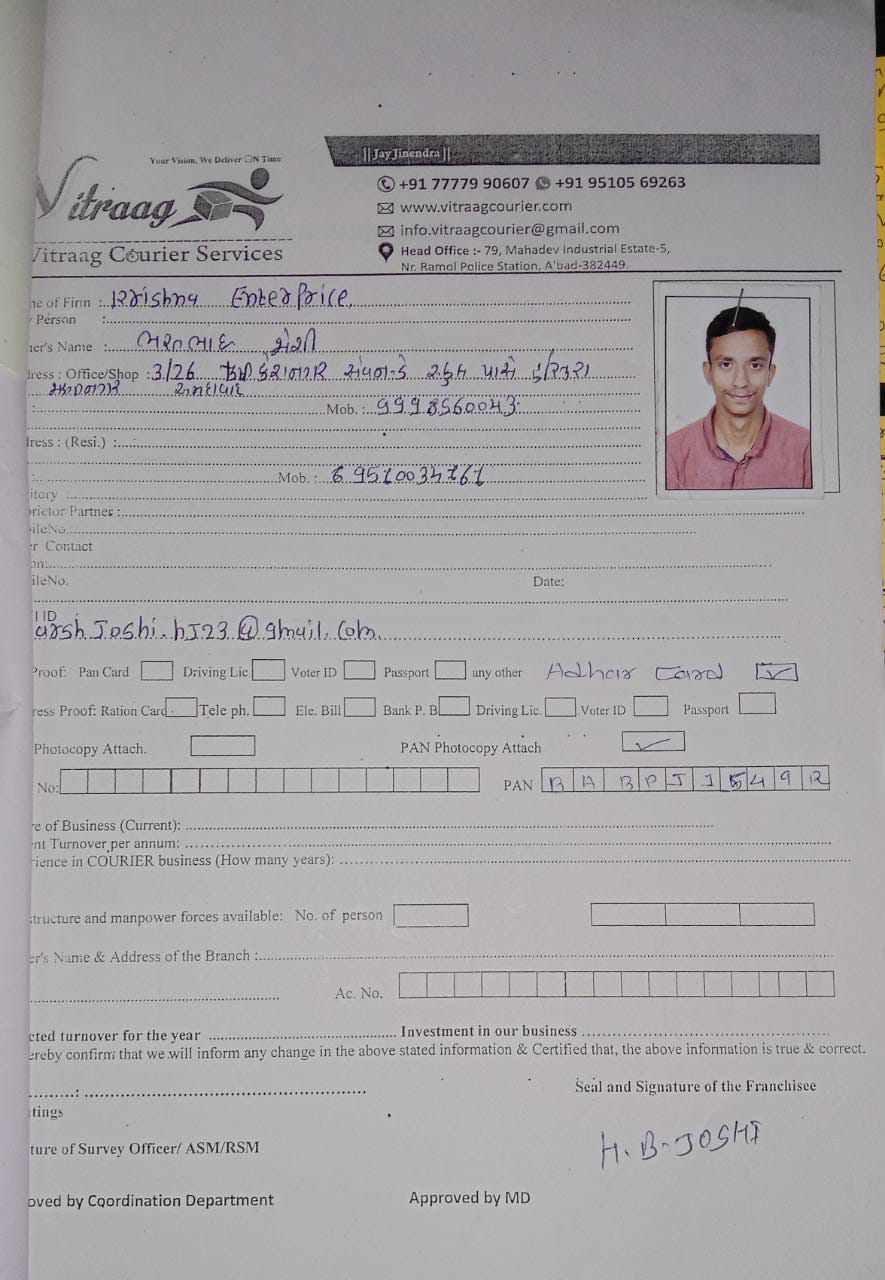 Your Vision, We Deliver ON Time
|| Jay Jinendra ||
Vitraag
Vitraag Courier Services
+91 77779 90607 +91 95105 69263
www.vitraagcourier.com
info.vitraagcourier@gmail.com
Head Office :- 79, Mahadev Industrial Estate-5,
Nr. Ramol Police Station, A'bad-382449.
ne of Firm : Krishna Enterprice
Person :
ner's Name :
dress : Office/Shop : 3/26
અમદાવાદ
: Mob. : 9998560043
dress : (Resi.) :
: Mob. :
itory :
rietor Partner :
ileNo.
er Contact
on:
ileNo. Date:
l ID
arsh Joshi.hJ23@gmail.com
Proof: Pan Card Driving Lic. Voter ID Passport any other Adhar Card
ress Proof: Ration Card Tele ph. Ele. Bill Bank P. B Driving Lic. Voter ID Passport
Photocopy Attach. PAN Photocopy Attach
No: PAN BABPJ1549R
re of Business (Current):
nt Turnover per annum:
rience in COURIER business (How many years):
structure and manpower forces available: No. of person
er's Name & Address of the Branch :
Ac. No.
cted turnover for the year Investment in our business
ereby confirm that we will inform any change in the above stated information & Certified that, the above information is true & correct.
Seal and Signature of the Franchisee
tings
H. B. JOSHI
ture of Survey Officer/ ASM/RSM
oved by Coordination Department Approved by MD